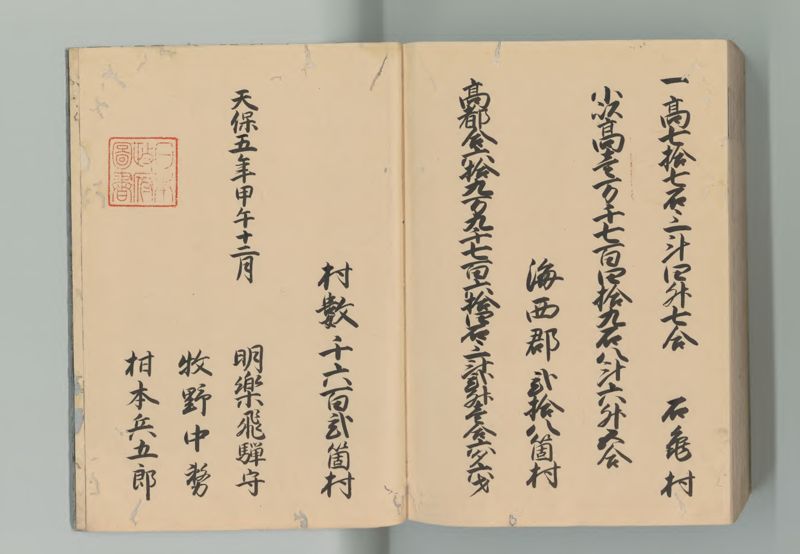 一高七拾七石三斗四升七合　石亀村
小以高壱万千七百四拾九石八斗六升五合
海西郡　弐拾八箇村
高都合六拾九万九千七百六拾四石三斗弐升壱合
村數　千六百弐箇村
天保五年甲午十二月
明樂飛騨守
牧野中務
柑本兵五郎
日本
政府
圖書